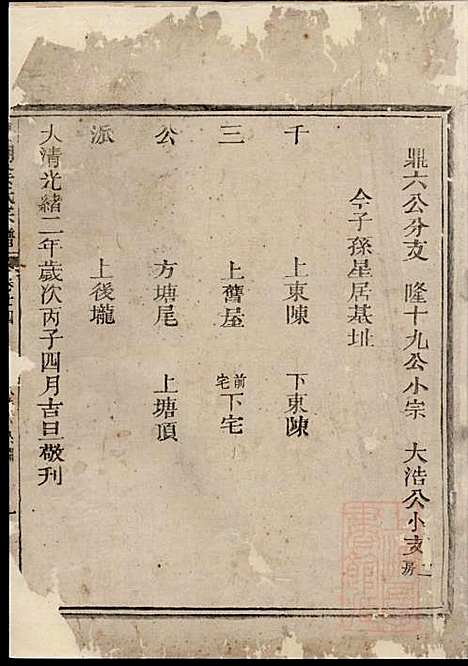 鼎六公分支 隆十九公小宗 大浩公小支二房
今子孫星居基址
千 上東陳 下東陳
三 上舊屋 前宅下宅
公 方塘尾 上塘頂
派 上後壠
大清光緒二年歲次丙子四月吉旦敬刊